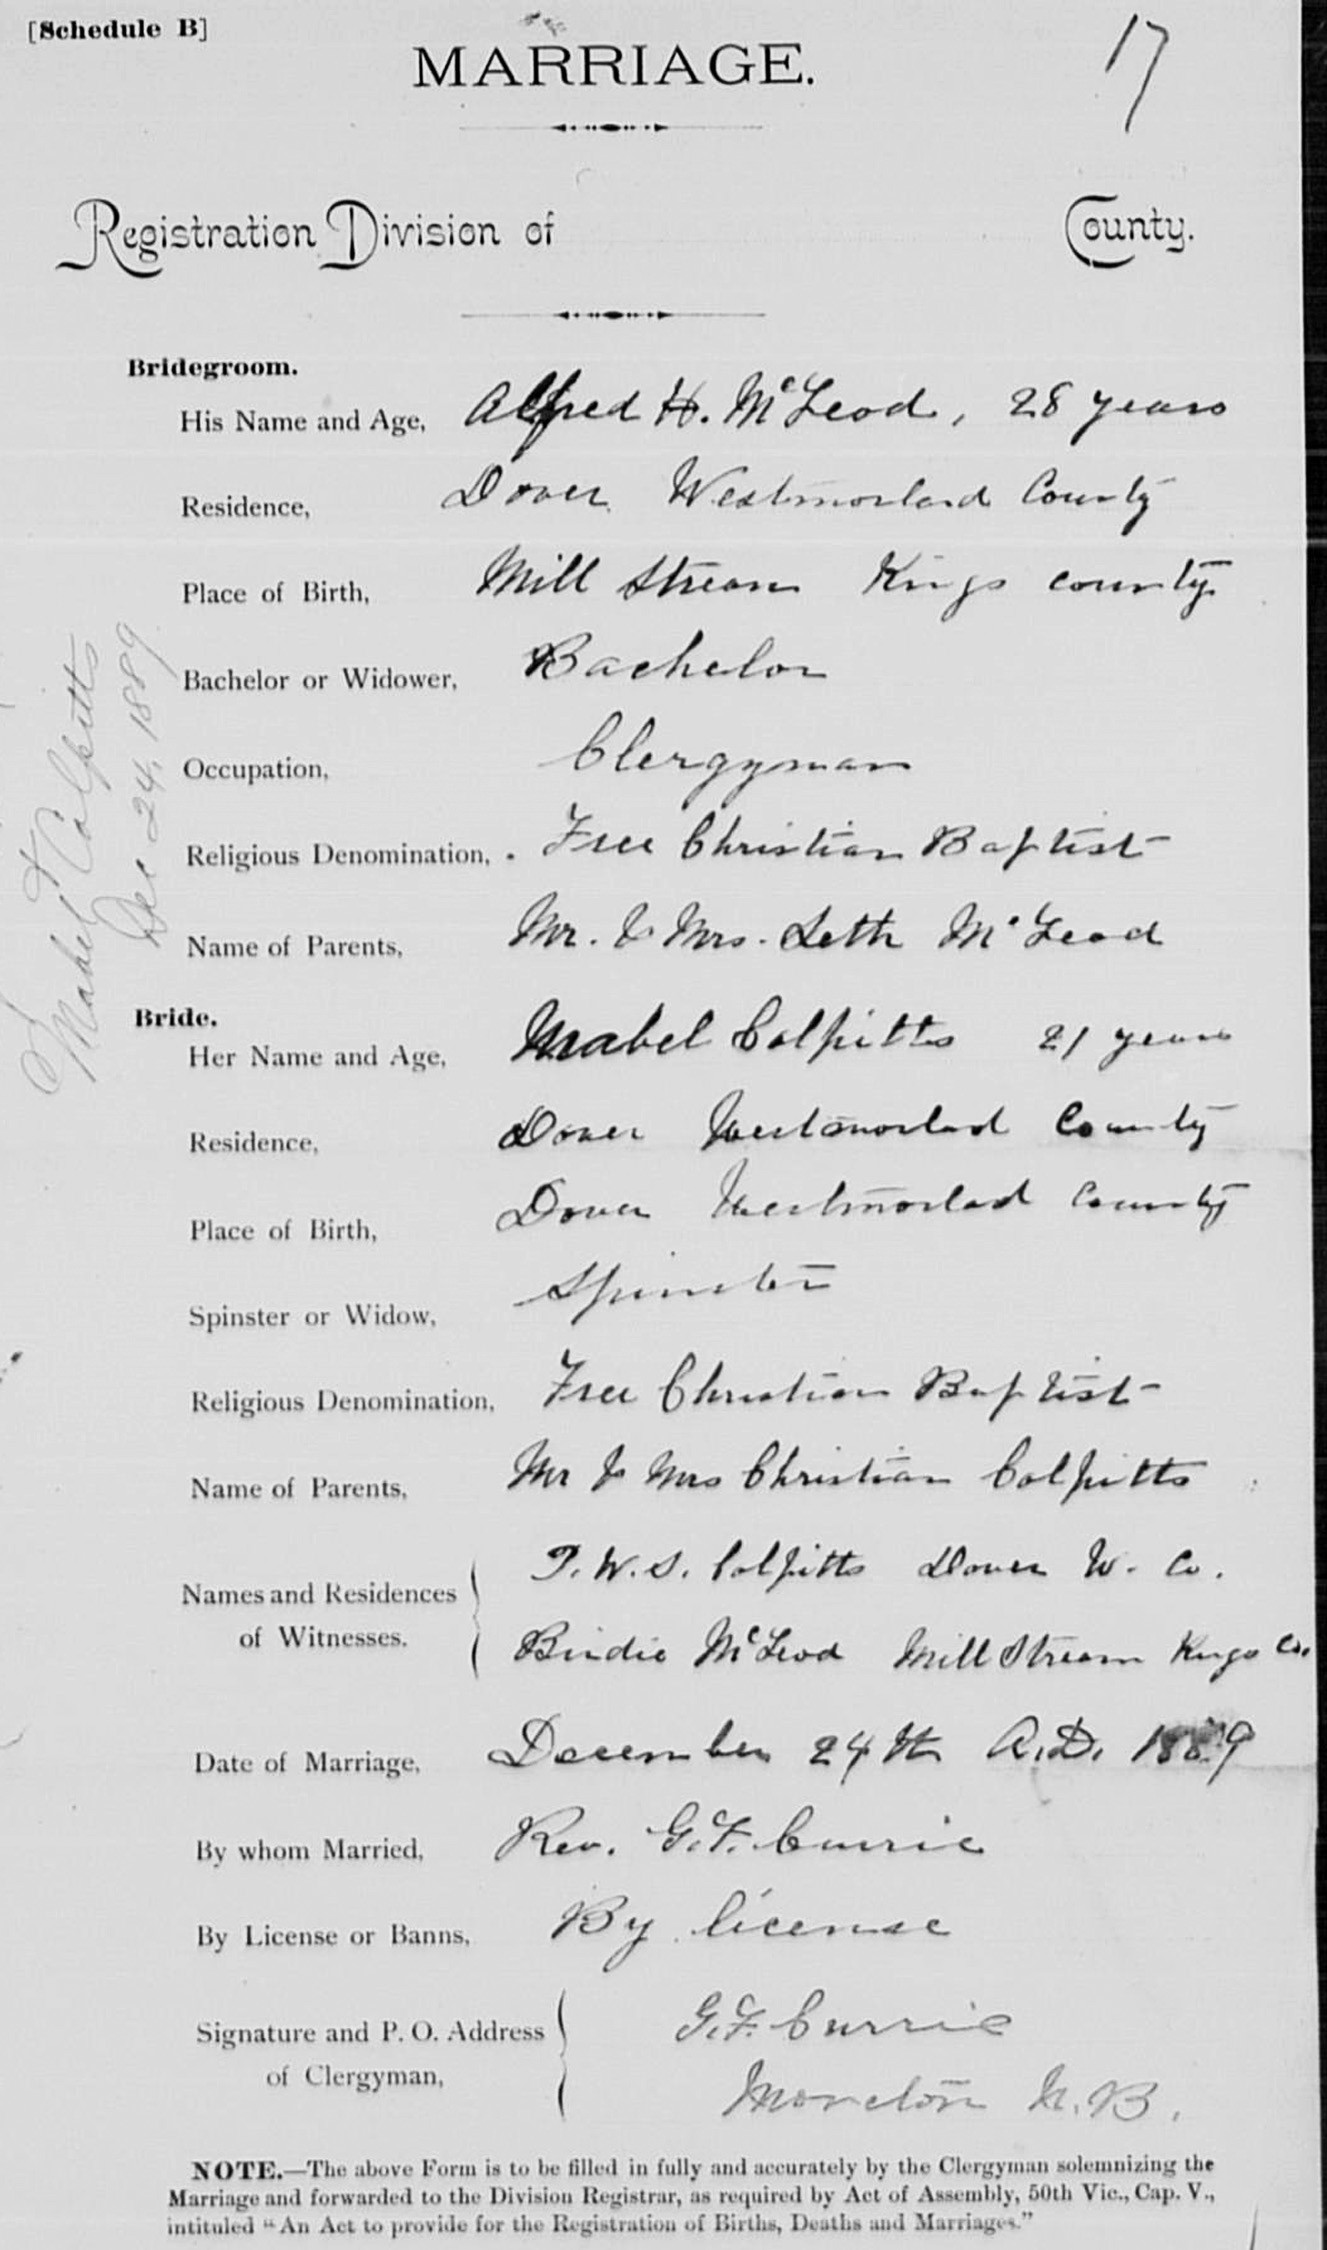 [Schedule B]
17
MARRIAGE.
Registration Division of County.
Bridegroom.
His Name and Age, Alfred H. McLeod, 28 years
Residence, Dover Westmorland County
Place of Birth, Mill Stream Kings County
Bachelor or Widower, Bachelor
Occupation, Clergyman
Religious Denomination, Free Christian Baptist
Name of Parents, Mr. & Mrs. Seth McLeod
Bride.
Her Name and Age, Mabel Colpitts 21 years
Residence, Dover Westmorland County
Place of Birth, Dover Westmorland County
Spinster or Widow, Spinster
Religious Denomination, Free Christian Baptist
Name of Parents, Mr & Mrs Christian Colpitts
Names and Residences of Witnesses. T. W. S. Colpitts Dover W. Co.
Birdie McLeod Mill Stream Kings Co.
Date of Marriage, December 24th A.D. 1889
By whom Married, Rev. G. F. Currie
By License or Banns, By license
Signature and P. O. Address of Clergyman, G. F. Currie
Moncton N. B.
NOTE.—The above Form is to be filled in fully and accurately by the Clergyman solemnizing the
Marriage and forwarded to the Division Registrar, as required by Act of Assembly, 50th Vic., Cap. V.,
intituled "An Act to provide for the Registration of Births, Deaths and Marriages."
Mabel Colpitts
Dec 24, 1889